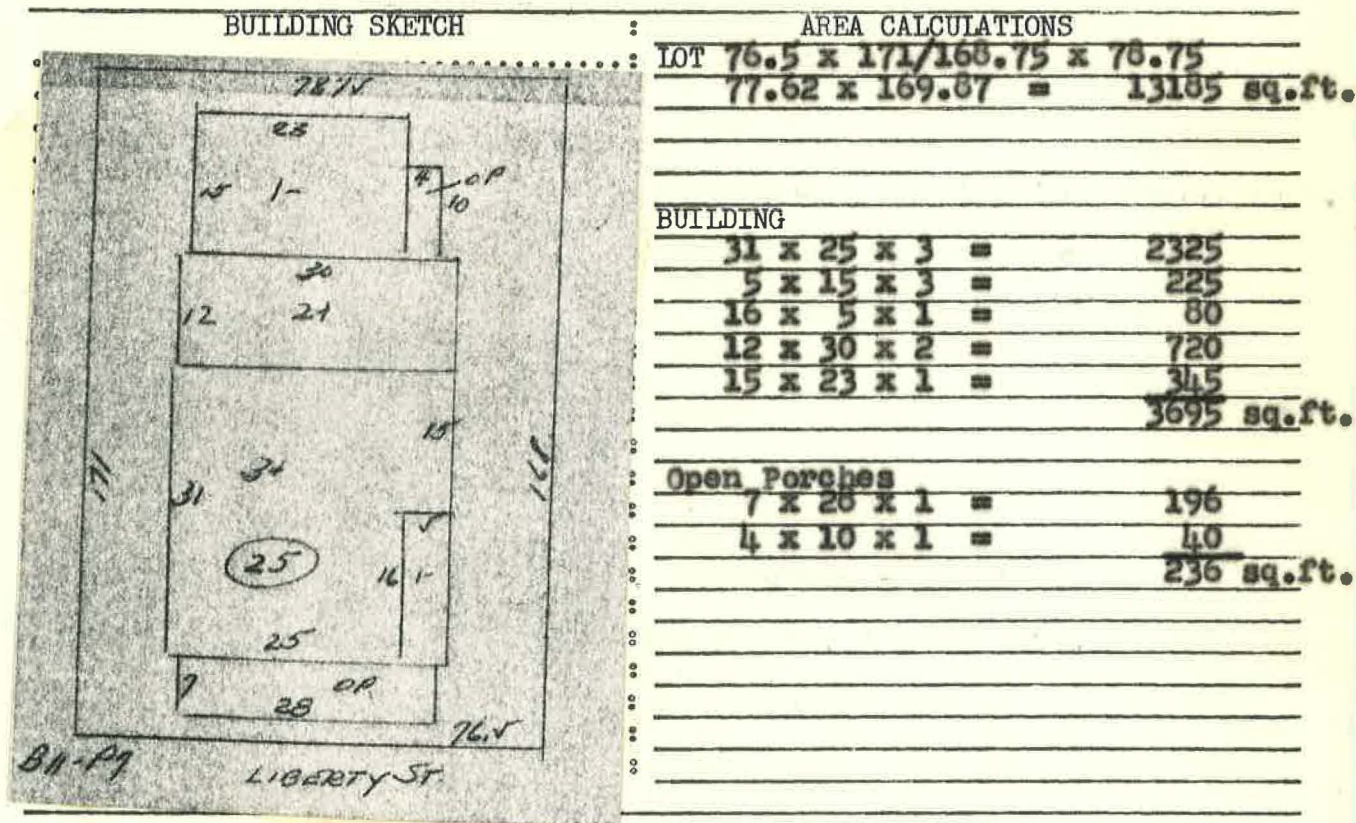 BUILDING SKETCH
78.75
23
15 1-
4 OP
10
30
12 2+
15
171
31 3+
168
5
25
16 1-
25
7 OP
28
76.5
B11-P9
LIBERTY ST.
AREA CALCULATIONS
LOT 76.5 x 171/168.75 x 78.75
77.62 x 169.87 = 13185 sq.ft.
BUILDING
31 x 25 x 3 = 2325
5 x 15 x 3 = 225
16 x 5 x 1 = 80
12 x 30 x 2 = 720
15 x 23 x 1 = 345
3695 sq.ft.
Open Porches
7 x 28 x 1 = 196
4 x 10 x 1 = 40
236 sq.ft.